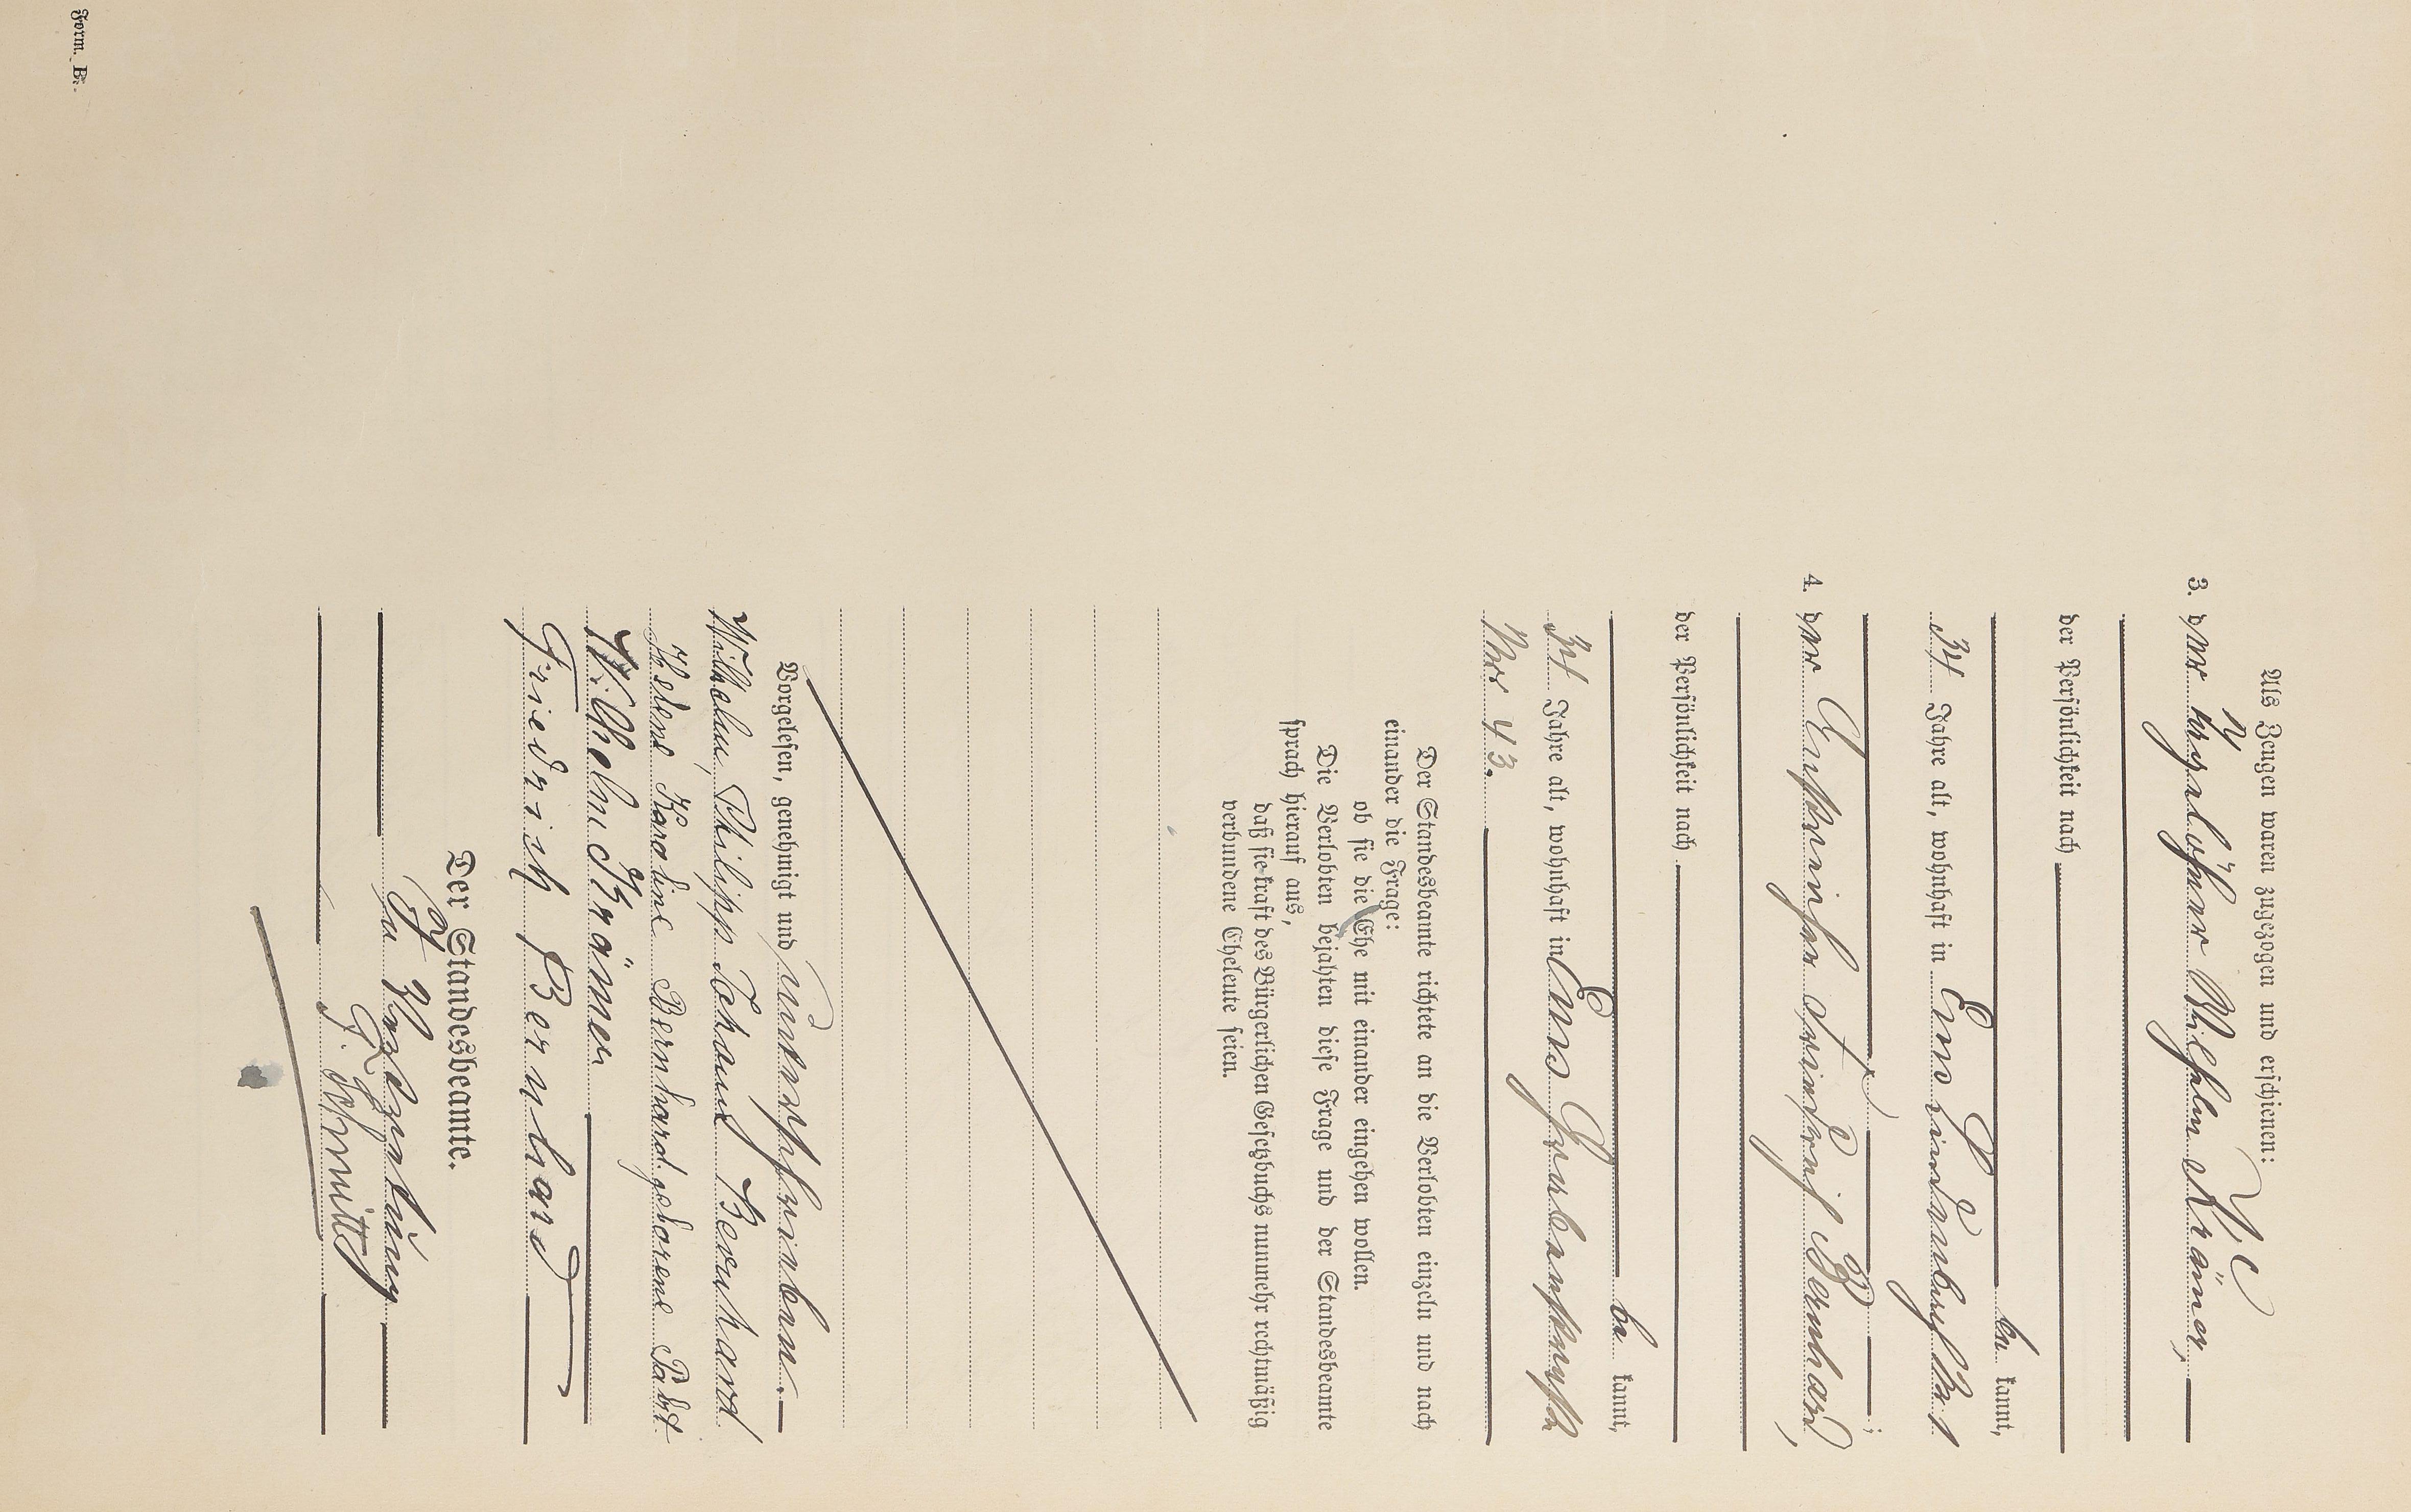 Als Zeugen waren zugezogen und erschienen:
3. der Tagelöhner Wilhelm Krämer,
der Persönlichkeit nach
be kannt,
34 Jahre alt, wohnhaft in Ems Lindenbach
;
4. der Friedrich Bernhard,
der Persönlichkeit nach
be kannt,
Jahre alt, wohnhaft in Ems
Nr 43.
Der Standesbeamte richtete an die Verlobten einzeln und nach
einander die Frage:
ob sie die Ehe mit einander eingehen wollen.
Die Verlobten bejahten diese Frage und der Standesbeamte
sprach hierauf aus,
daß sie kraft des Bürgerlichen Gesetzbuchs nunmehr rechtmäßig
verbundene Eheleute seien.
Vorgelesen, genehmigt und unterschrieben.
Wilhelm, Philipp Johann Bernhard
Helene Karoline Bernhard geborene Pabst
Wilhelm Krämer
Friedrich Bernhard
Der Standesbeamte.
In Vertretung
F. Schmitt
Form. B.